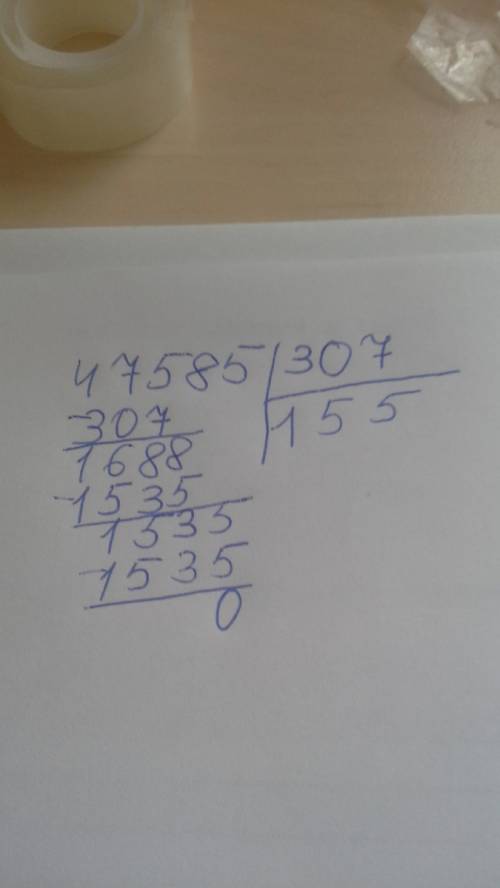 47585 307
-307 155
1688
-1535
1535
-1535
0